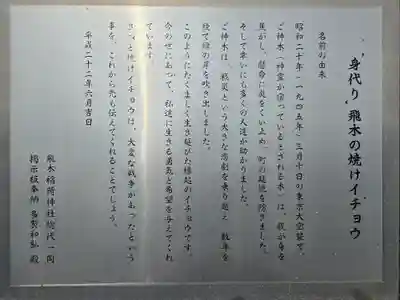 身代り 飛木の焼けイチョウ
名前の由来
昭和二十年(一九四五年)三月十日の東京大空襲で、
ご神木(神霊が宿っているとされる木)は、我が身を
焦がし、懸命に炎をくい止め、町の延焼を防ぎました。
そして幸いにも多くの人達が助かりました。
ご神木は、戦災という大きな悲劇を乗り越え、数年を
経て緑の芽を吹き出しました。
このようにたくましく生き延びた縁起のイチョウです。
今のせにあって、私達に生きる勇気と希望を与えてくれ
ています。
きっと焼けイチョウは、大変な戦争があったという
事を、これからも伝えてくれることでしょう。
平成二十二年六月吉日
飛木稲荷神社総代一同
掲示板奉納 多賀和弘 殿